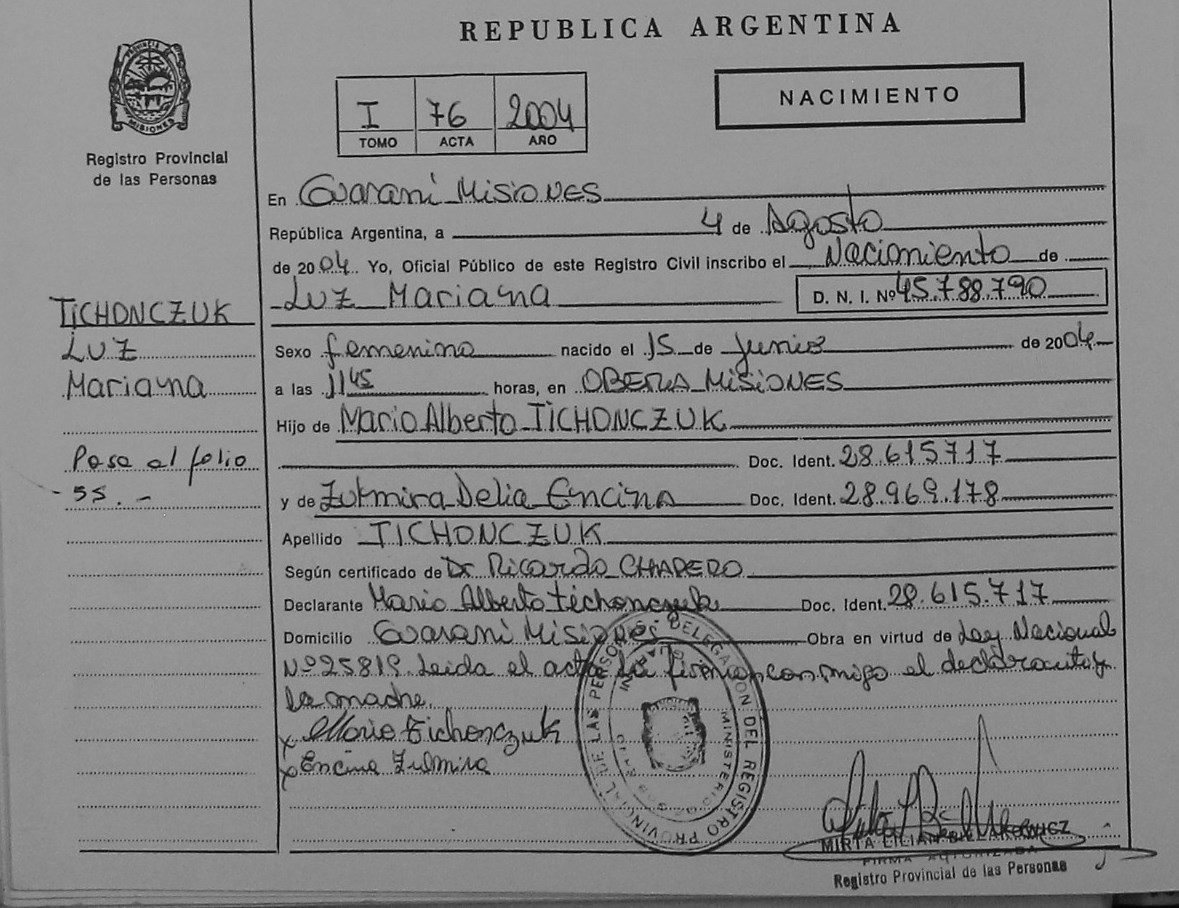 REPUBLICA ARGENTINA
PROVINCIA DE MISIONES
Registro Provincial
de las Personas
I 76 2004
TOMO ACTA AÑO
NACIMIENTO
En Guarani Misiones
República Argentina, a 4 de Agosto
de 2004. Yo, Oficial Público de este Registro Civil inscribo el Nacimiento de
Luz Mariana D. N. I. Nº 45.788.790
TICHONCZUK
LUZ
Mariana
Pasa al folio
- 55. -
Sexo femenino nacido el 15 de Junio de 2004
a las 11 45 horas, en OBERA MISIONES
Hijo de Mario Alberto TICHONCZUK
Doc. Ident. 28.615.717
y de Zulmira Delia Encina Doc. Ident. 28.969.178
Apellido TICHONCZUK
Según certificado de Dr Ricardo CHIAPERO
Declarante Mario Alberto Tichonczuk Doc. Ident. 28.615.717
Domicilio Guarani Misiones. Obra en virtud de Ley Nacional
Nº 25819. Leida el acta la firman conmigo el declarante y
la madre.
x Mario Tichonczuk
x Encina Zulmira
DELEGACION DEL REGISTRO PROVINCIAL DE LAS PERSONAS
MINISTERIO DE
MIRTA LILIAN
FIRMA AUTORIZADA
Registro Provincial de las Personas